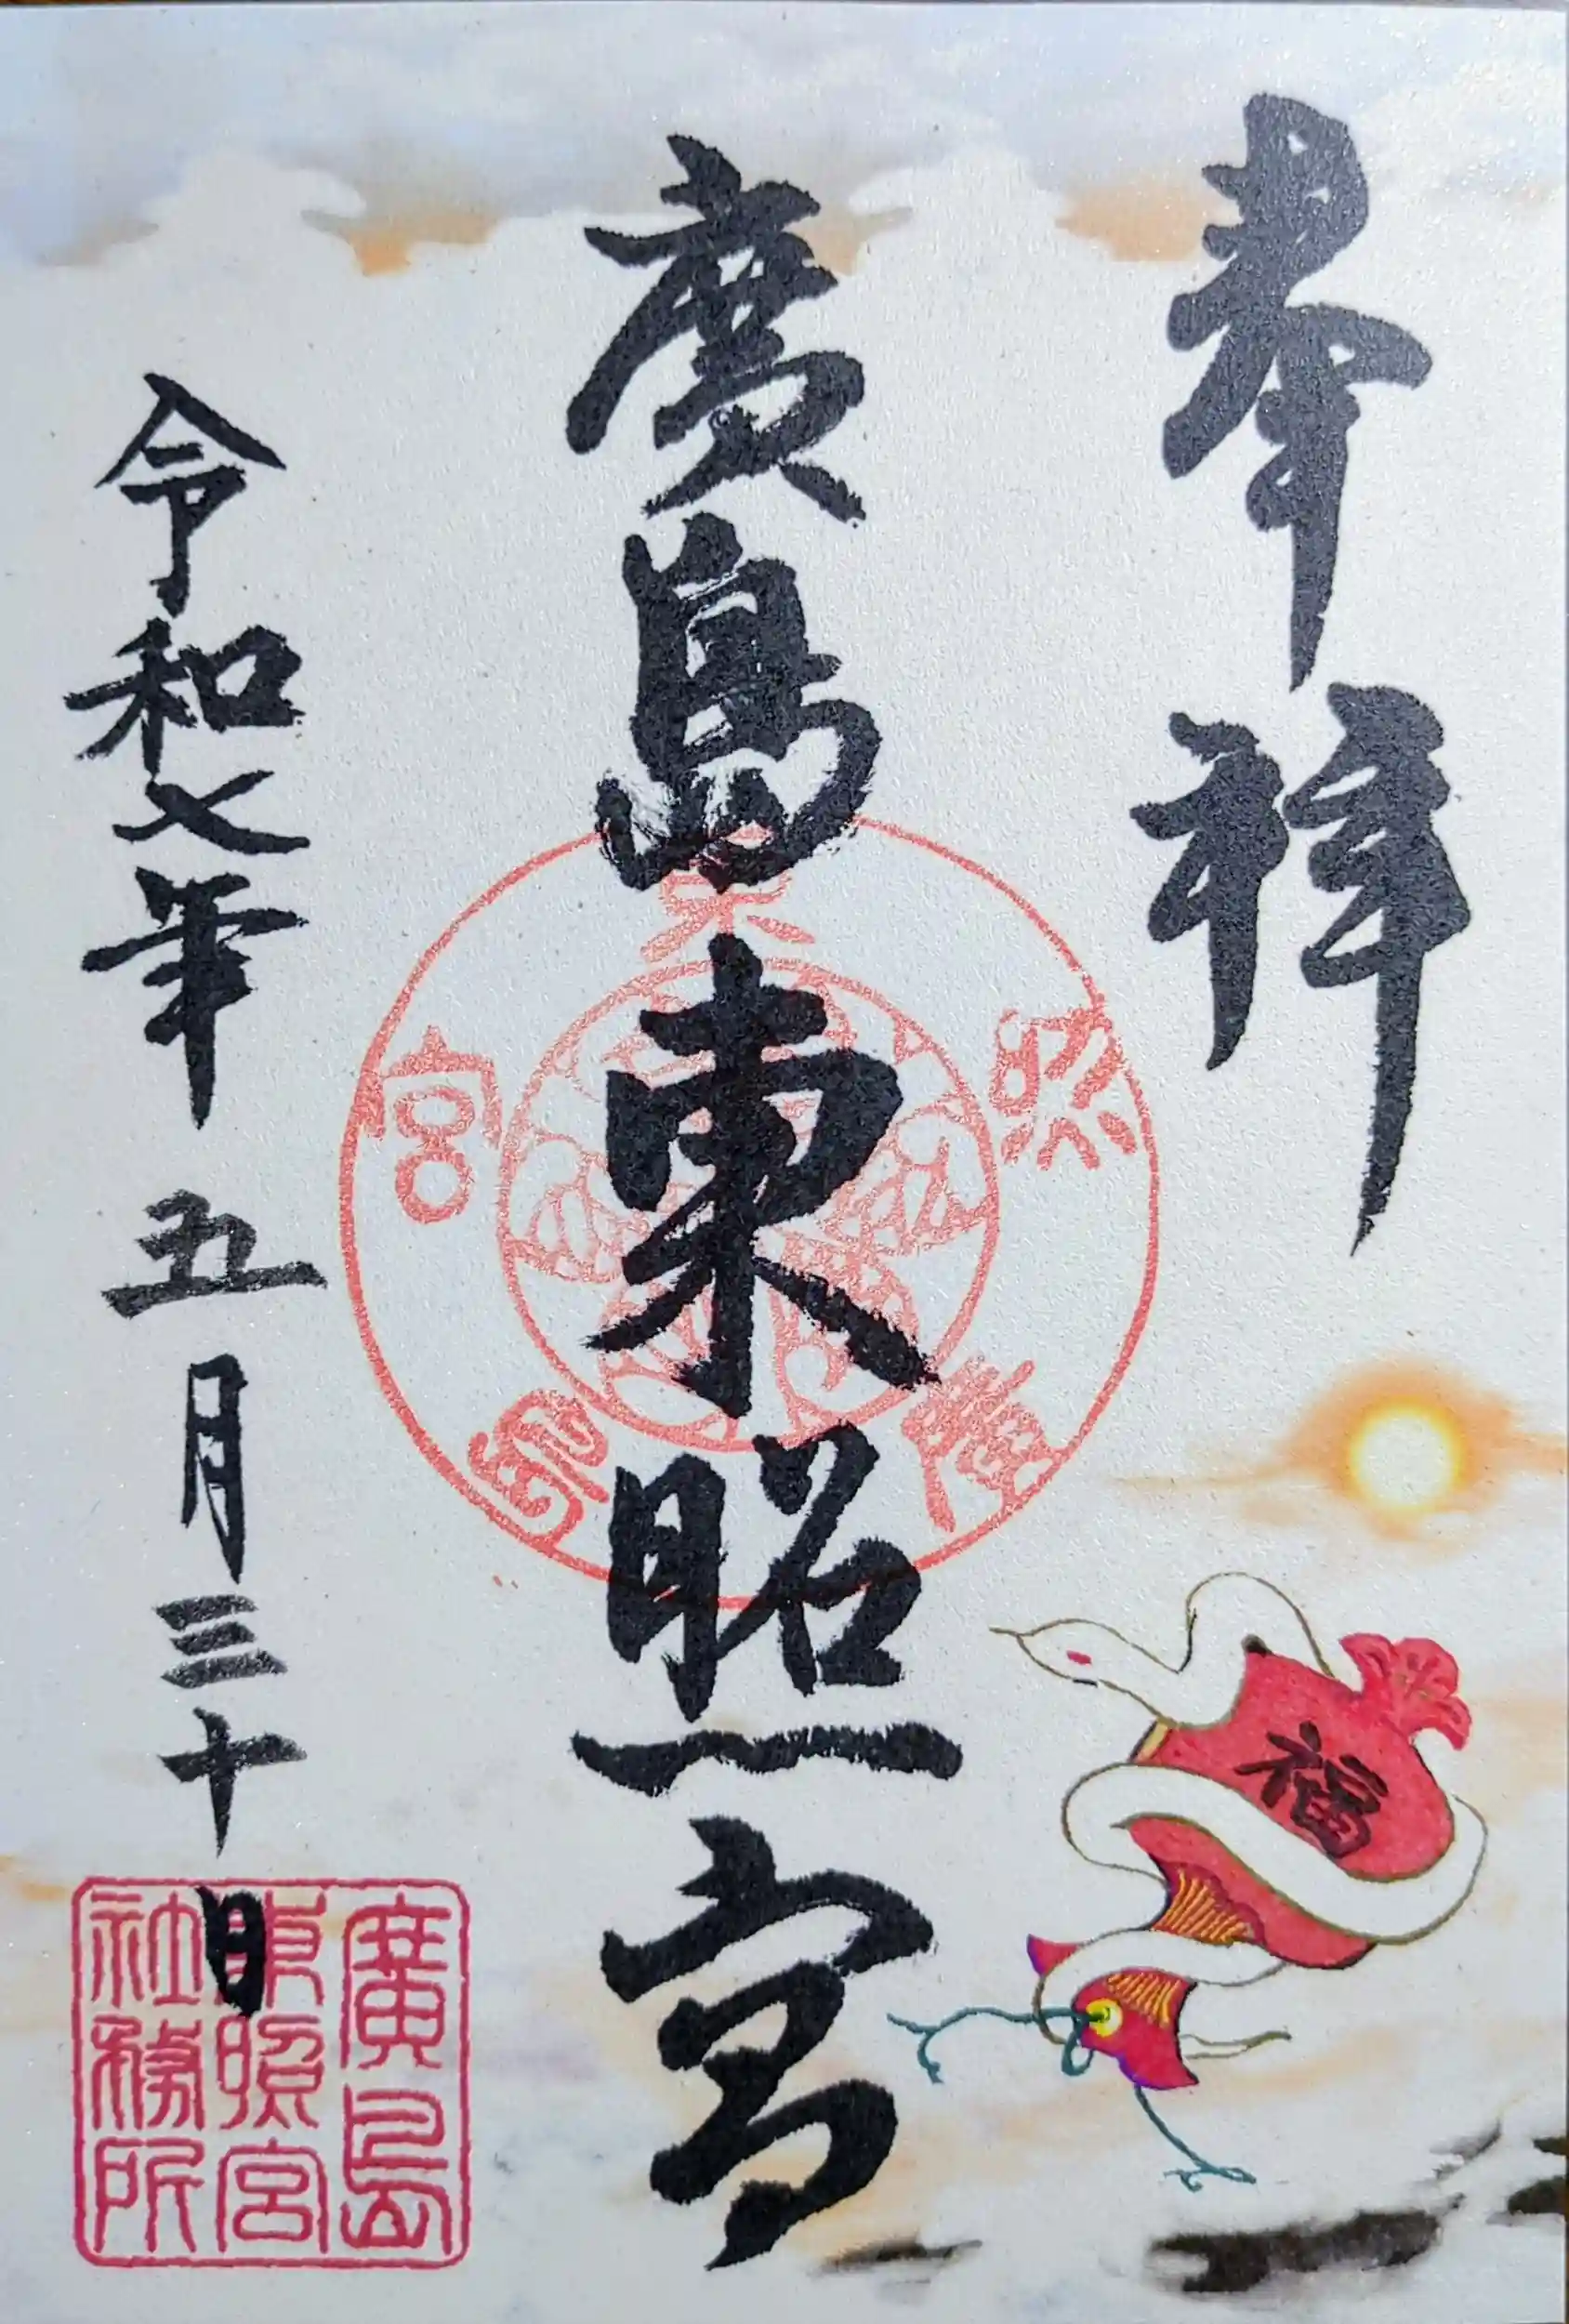 奉拝
廣島東照宮
令和七年 五月三十日
東照廣島宮
福
廣島
東照宮
社務所